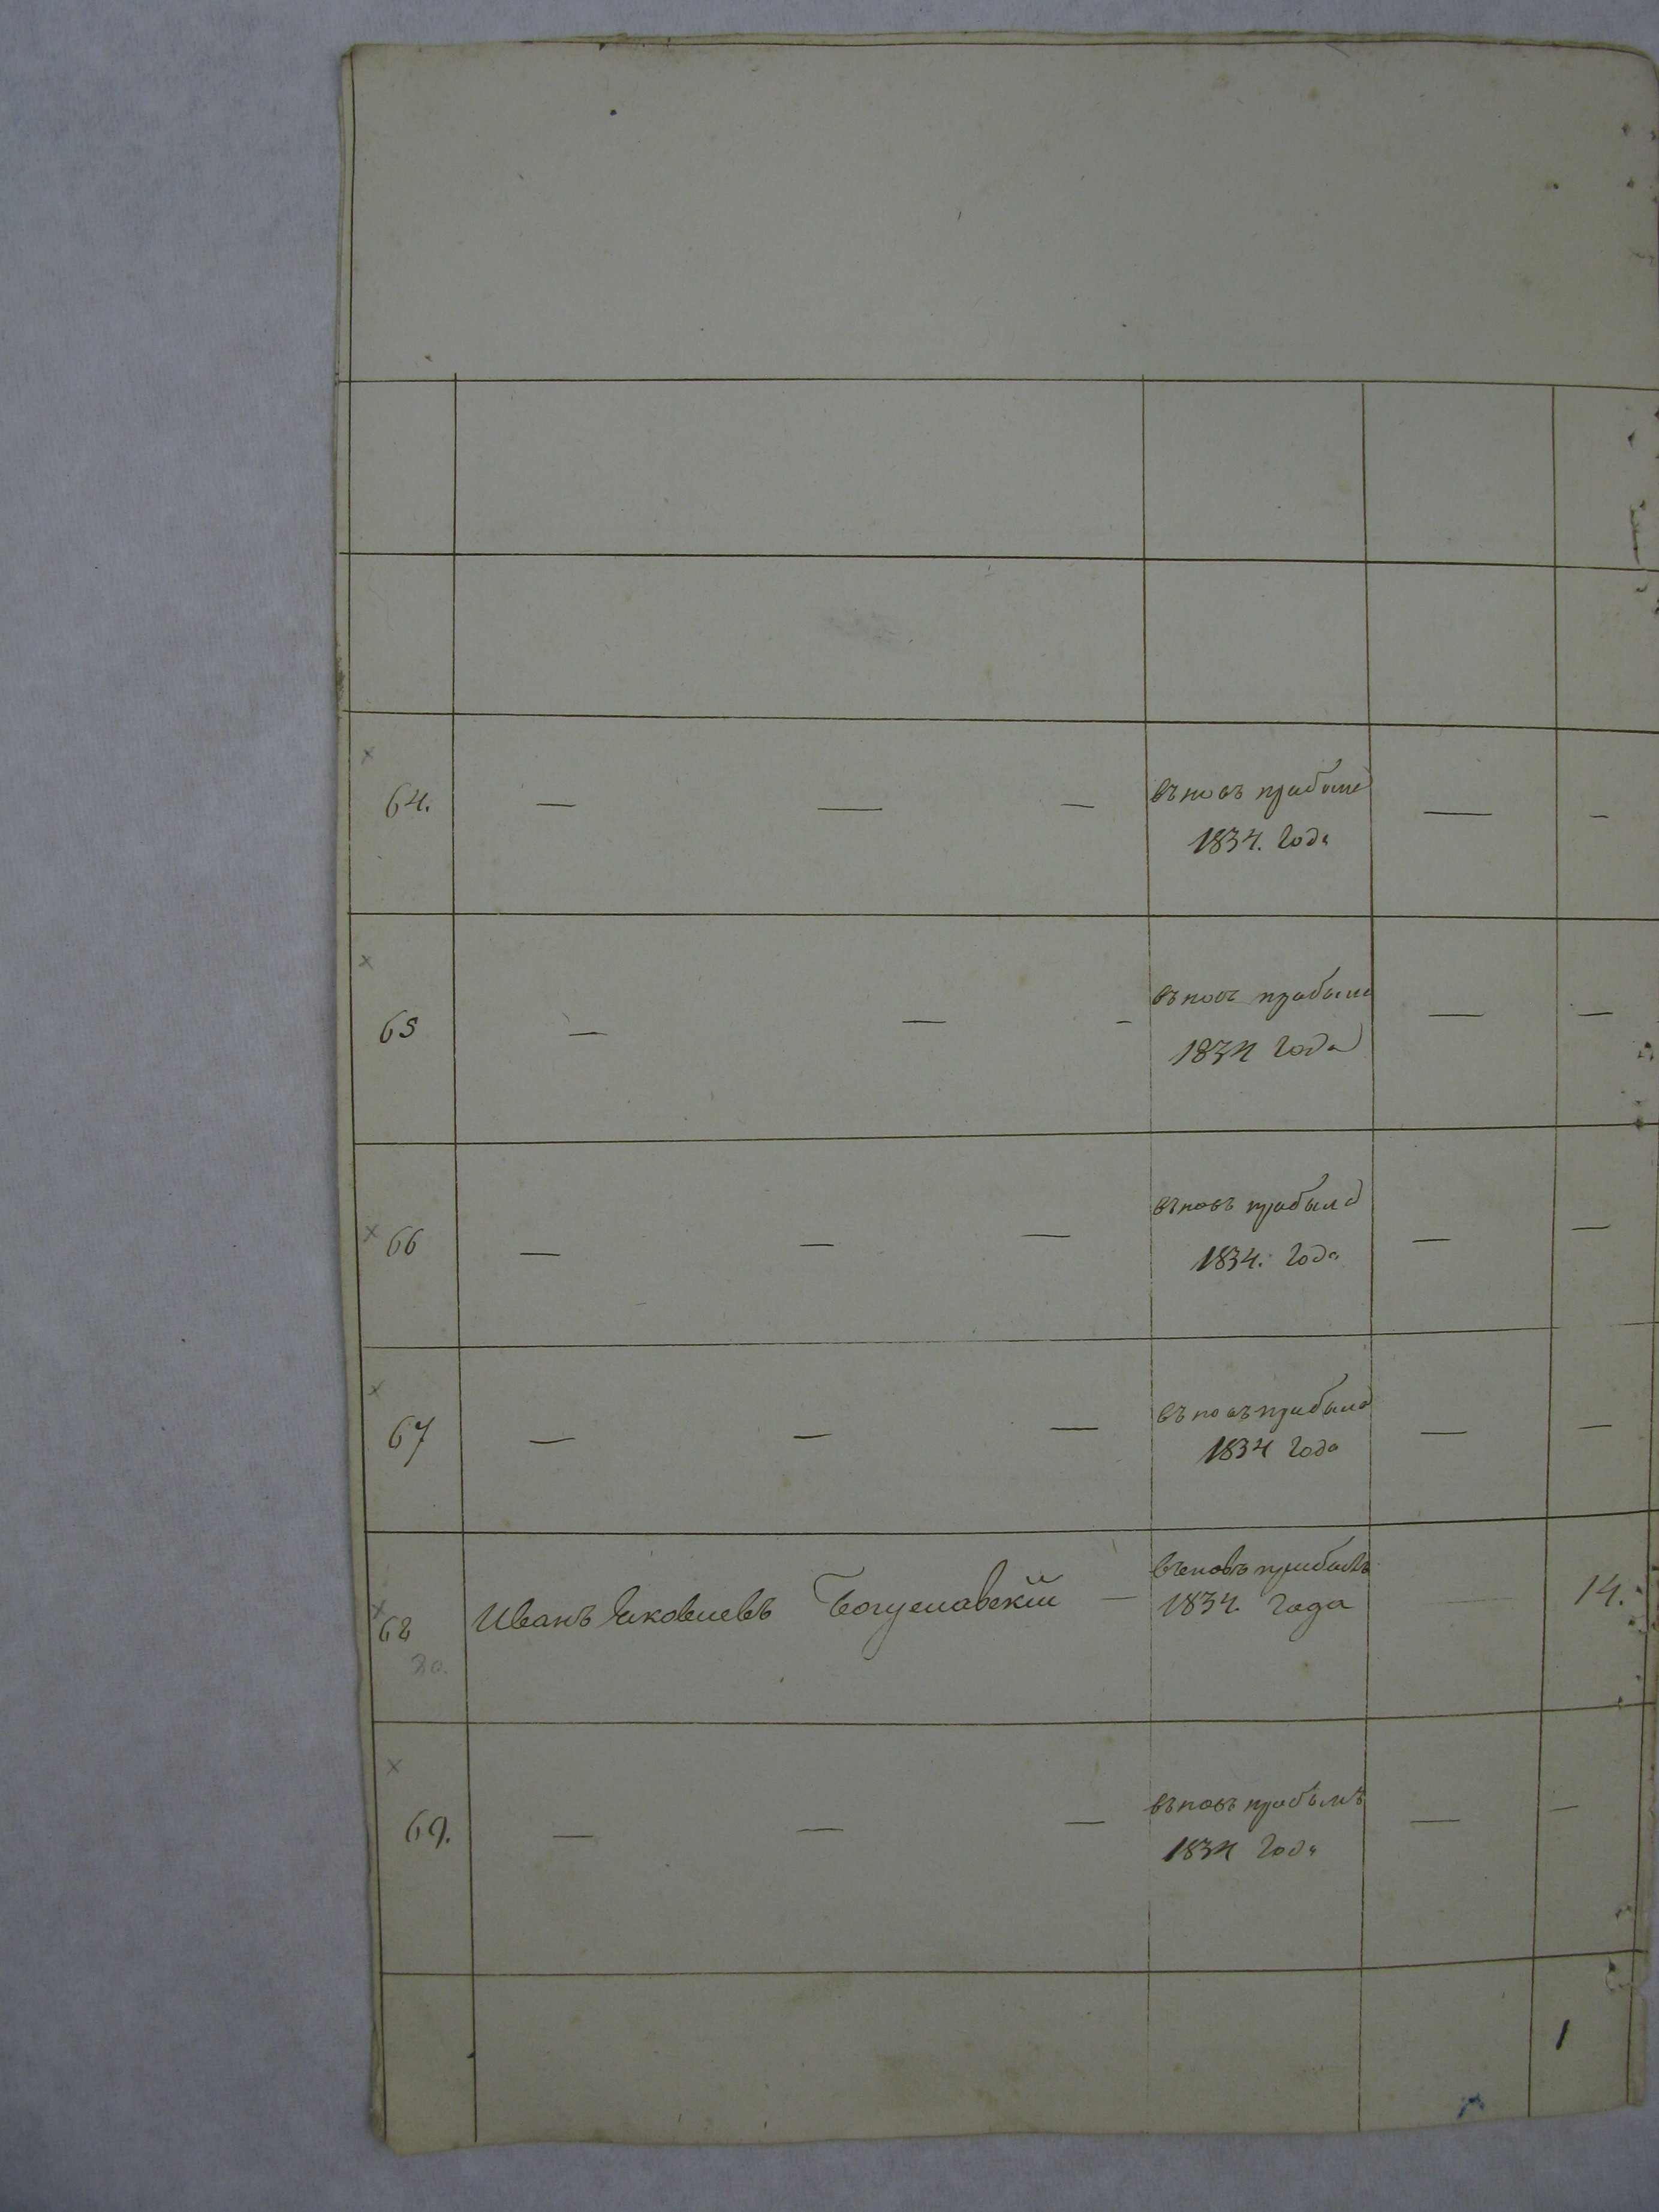 64. — — — въновъ прибыла — —
1834. года
65 — — — въновъ прибыла — —
1834 года
66 — — — въновъ прибыла — —
1834. года
67 — — — въновъ прибыла — —
1834 года
68 Иванъ Яковлевъ Богуславскій — въновь прибылъ — 14.
1834. года
80.
69. — — — въновъ прибылъ — —
1834 года
1